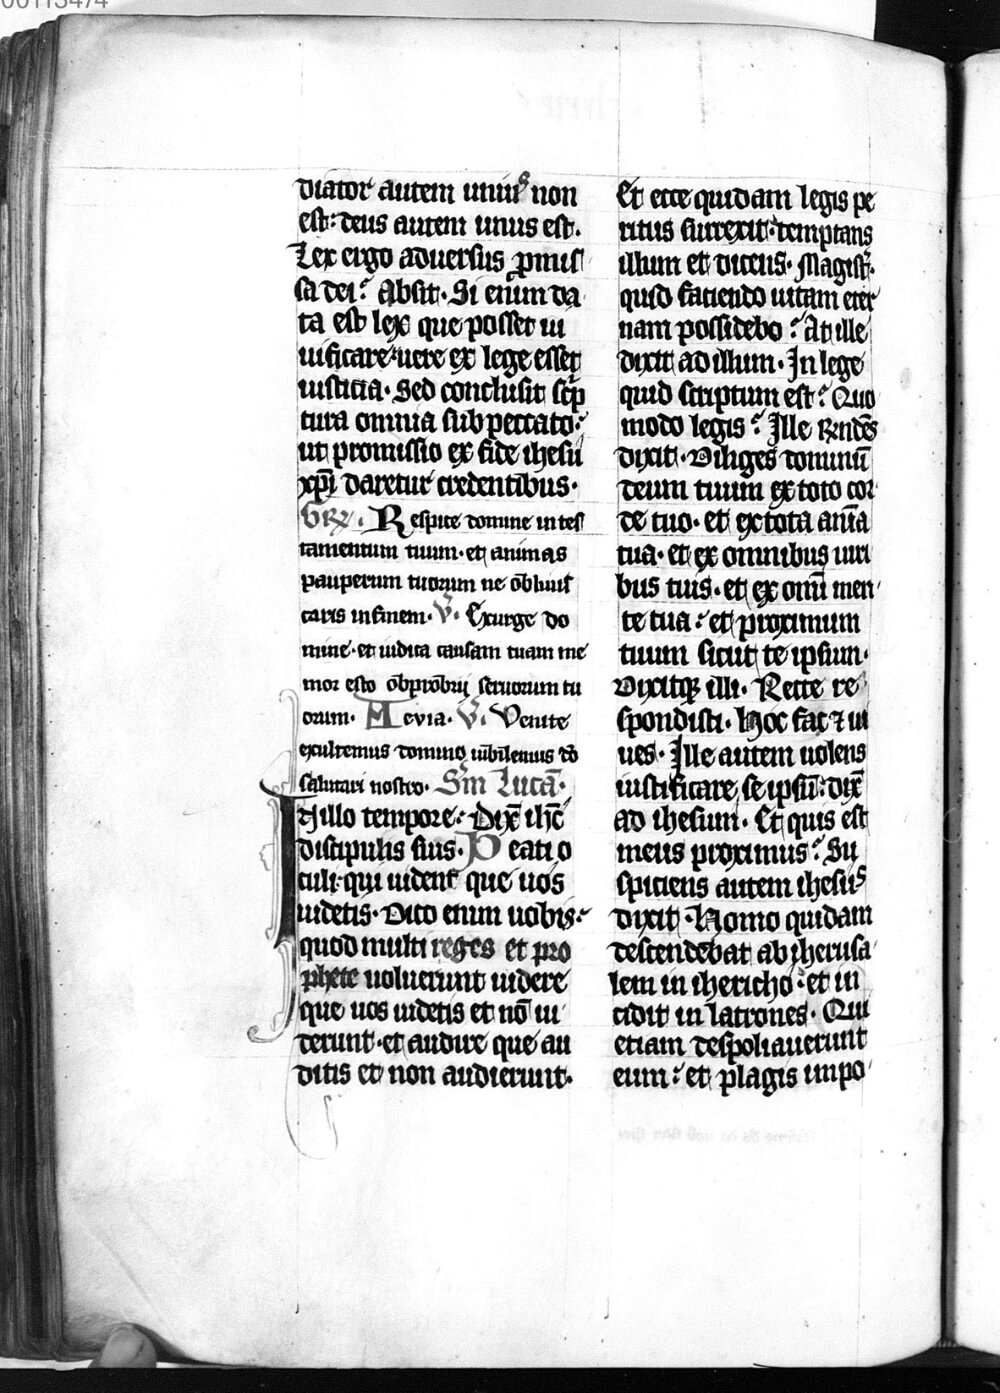 00113474
diator autem uniuˢ non
est: deus autem unus est.
Lex ergo aduersus ꝓmis
sa dei? Absit. Si enim da
ta est lex que posset ui
uificare: uere ex lege esset
iusticia. Sed conclusit sc̄p
tura omnia sub peccato:
ut promissio ex fide ihesu
xp̄i daretur credentibus.
Gr̄. Respice domine in tes
tamentum tuum. et animas
pauperum tuorum ne obliuis
caris in finem. V̄. Exurge do
mine. et iudica causam tuam me
mor esto obprobrij seruorum tu
orum. Aeuia. V̄. Venite
exultemus domino iubilemus deo
salutari nostro. S̄m Lucā.
In illo tempore: Dix̄ ihc̄
discipulis suis. Beati o
culi. qui uident que uos
uidetis. Dico enim uobis:
quod multi reges et pro
phete uoluerunt uidere
que uos uidetis et nō ui
derunt. et audire que au
ditis et non audierunt.
Et ecce quidam legis pe
ritus surrexit. temptans
illum et dicens. Magist̄.
quid faciendo uitam eter
nam possidebo? At ille
dixit ad illum. In lege
quid scriptum est? Quo
modo legis? Ille r̄ndēs
dixit. Diliges dominū
deum tuum ex toto cor
de tuo. et ex tota anīa
tua. et ex omnibus uiri
bus tuis. et ex omī men
te tua: et proximum
tuum sicut te ipsum.
Dixitqꝫ illi. Recte re
spondisti. hoc fac ⁊ ui
ues. Ille autem uolens
iustificare se ipsū: dix̄
ad ihesum. Et quis est
meus proximus? Su
spiciens autem ihesuˢ
dixit. Homo quidam
descendebat ab iherusa
lem in ihericho: et in
cidit in latrones. Qui
etiam despoliauerunt
eum: et plagis impo